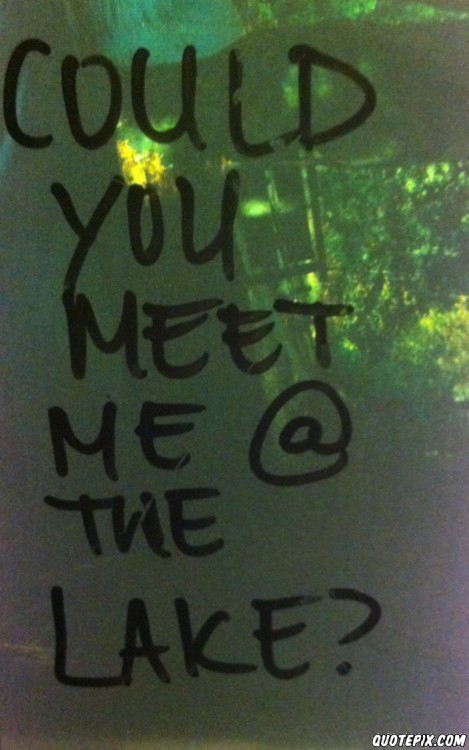 COULD
YOU
MEET
ME @
THE
LAKE?
QUOTEPIX.COM